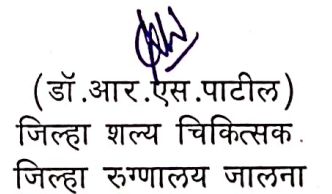 (डॉ.आर.एस.पाटील)
जिल्हा शल्य चिकित्सक.
जिल्हा रुग्णालय जालना